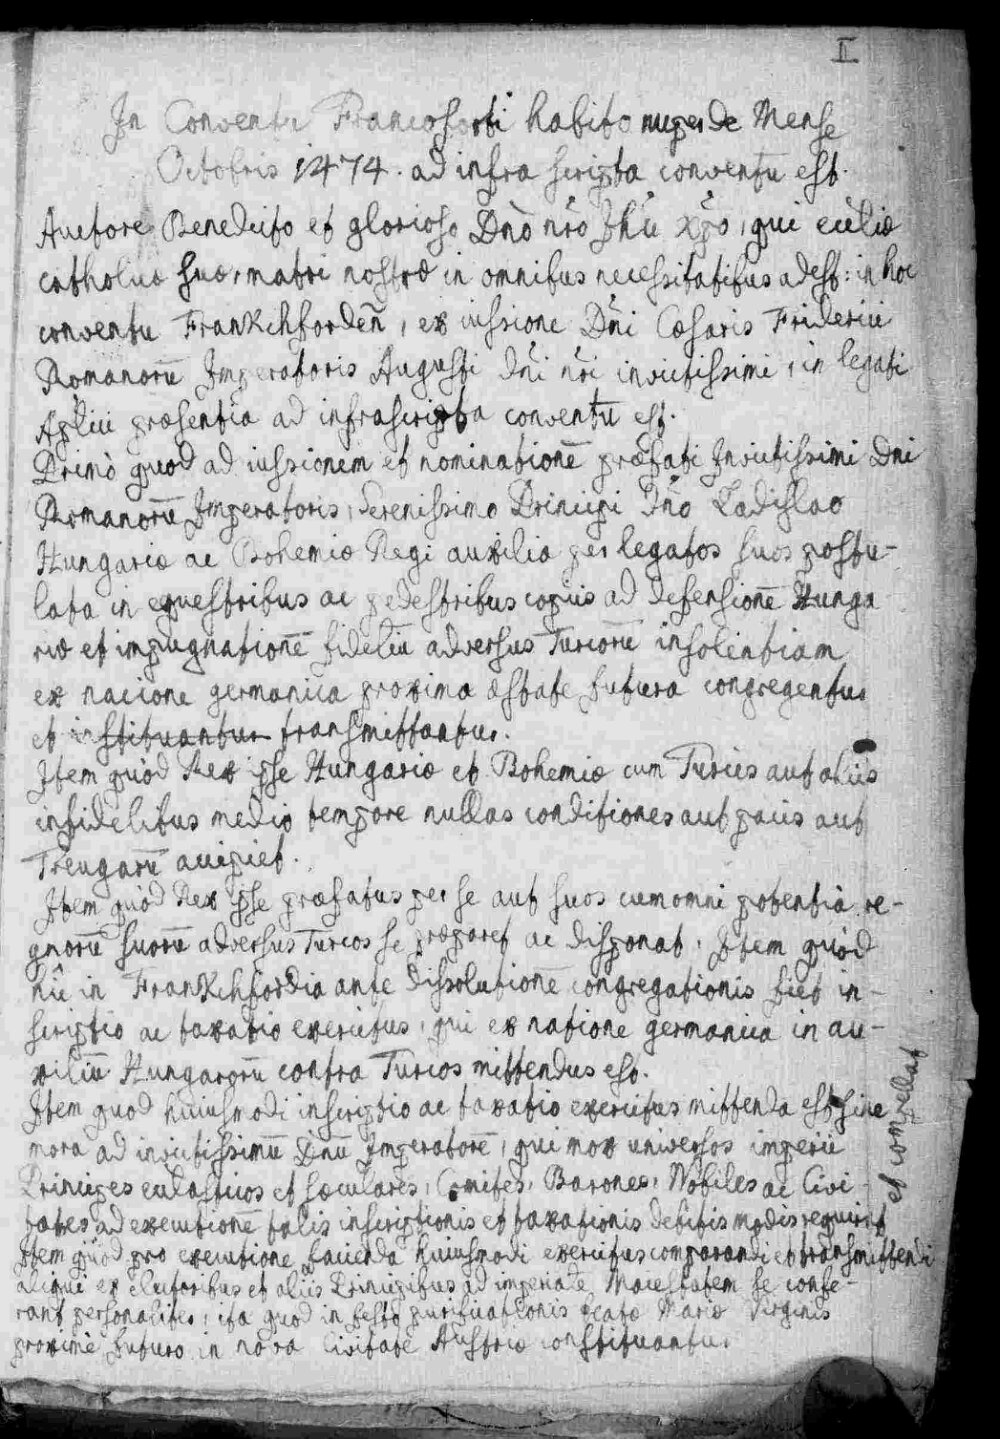 II
In Conventu Francoforti habito nuper de Mense
Octobris 1474. ad infra scripta conventu est.
Auctore Benedicto et glorioso Dn̄o nr̄o Jhū Xp̄o, qui eccliæ
catholicæ suæ, matri nostræ in omnibus necessitatibus adest: in hoc
conventu Frankchforden̄, ex iussione Dn̄i Cæsaris Friderici
Romanorū Imperatoris Augusti dn̄i nr̄i invictissimi, in legati
Aplici præsentia ad infrascripta conventu est.
Primò quod ad iussionem et nominationē præfati Invictissimi Dni
Romanorū Imperatoris, Serenissimo Principi Dn̄o Ladislao
Hungariæ ac Bohemiæ Regi auxilia per legatos suos postu-
lata in equestribus ac pedestribus copiis ad defensionē Hunga
riæ et impugnationē fideliū adversus Turcorū insolentiam
ex nacione germanica proxima æstate futura congregentur
et instituantur transmittantur.
Item quòd Rex ipse Hungariæ et Bohemiæ cum Turcis aut aliis
infidelibus medio tempore nullas conditiones aut pacis aut
Treugarū accipiet.
Item quòd Rex ipse præfatus per se aut suos cum omni potentia re-
gnorū suorū adversus Turcos se præparet ac disponat. Item quòd
nūc in Frankchfordia ante dissolutionē congregationis fiet in-
scriptio ac taxatio exercitus, qui ex natione germanica in au-
xiliū Hungarorū contra Turcos mittendus est.
Item quod huiusmodi inscriptio ac taxatio exercitus mittenda est sine
mora ad invictissimū Dnū Imperatorē, qui mox universos imperii
Principes ecclasticos et sæculares, Comites, Barones, Nobiles ac Civi-
tates ad executionē talis inscriptionis et taxationis debitis modis requirat
et compellat
Item quòd pro executione facienda huiusmodi exercitus comparandi et transmittendi
aliqui ex Electoribus et aliis Principibus ad imperiale Maiestatem se confe-
rant personaliter, ita quod in festo purificationis beatæ Mariæ Virginis
proximè futuro in nova Civitate Austriæ constituantur